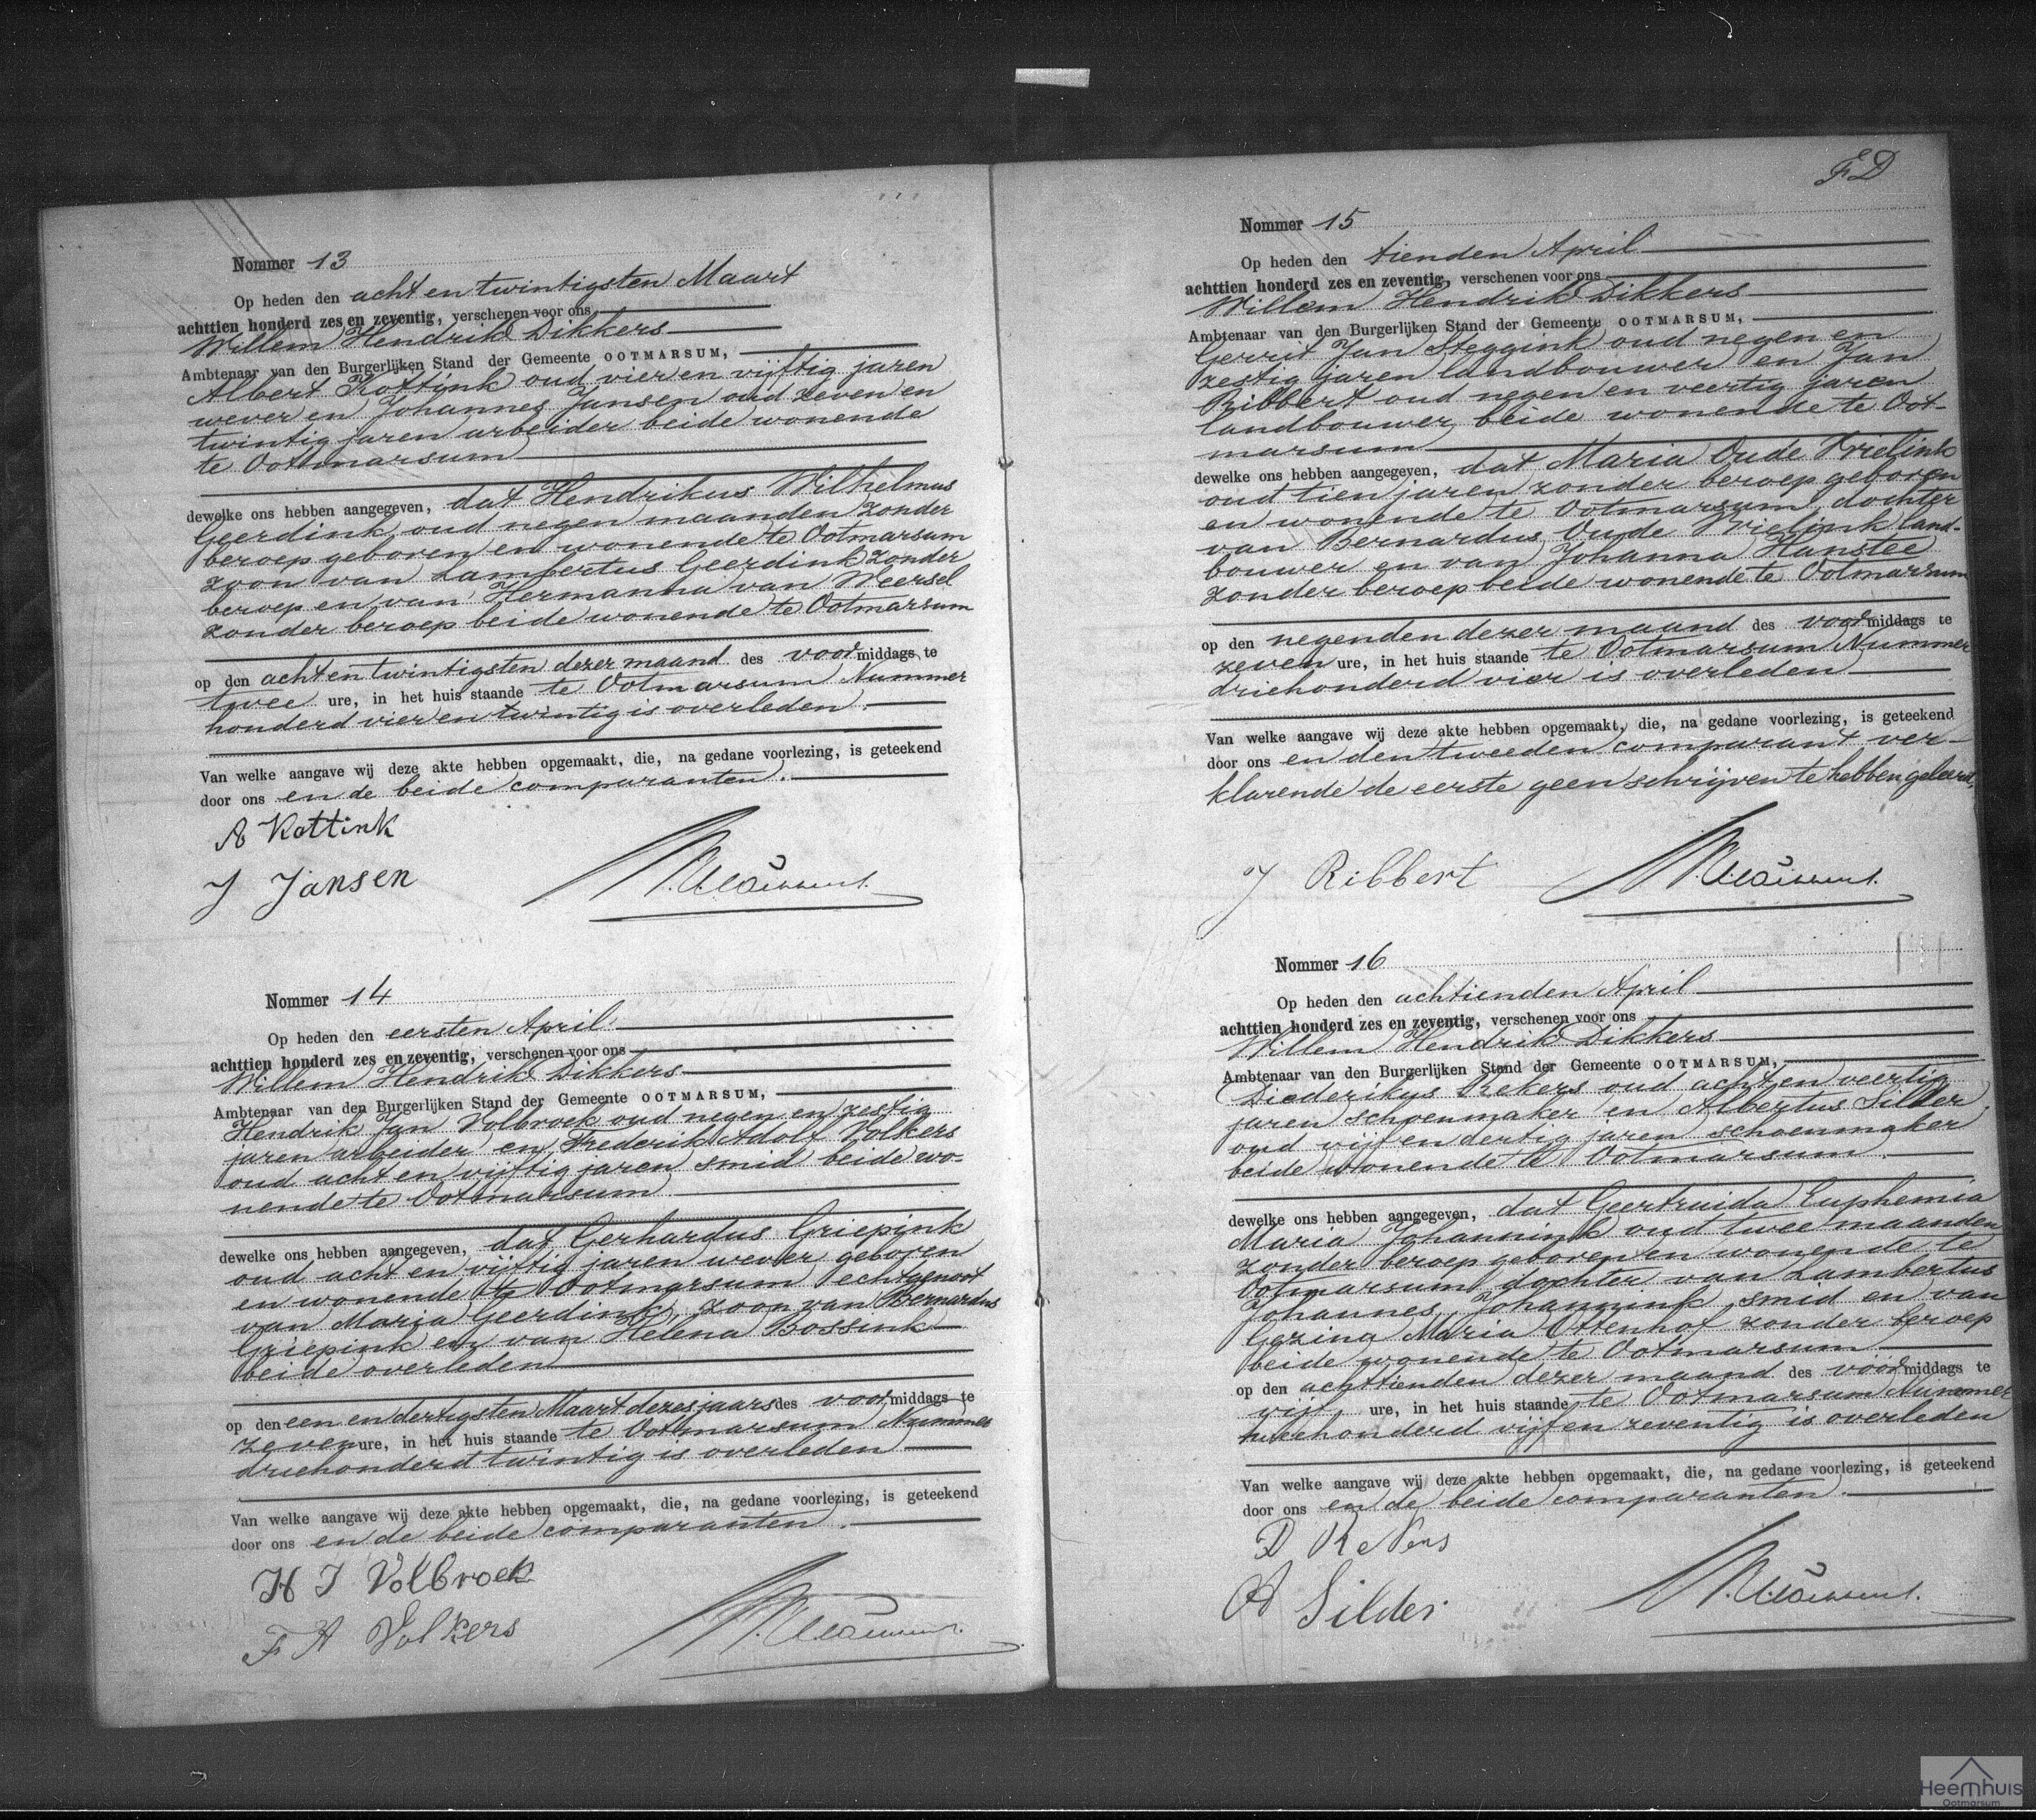 Nommer 13
Op heden den acht en twintigsten Maart
achttien honderd zes en zeventig, verschenen voor ons
Willem Hendrik Dikkers
Ambtenaar van den Burgerlijken Stand der Gemeente OOTMARSUM,
Albert Kottink oud vier en vijftig jaren
wever en Johannes Jansen oud zeven en
twintig jaren arbeider beide wonende
te Ootmarsum
dewelke ons hebben aangegeven, dat Hendrikus Wilhelmus
Geerdink oud negen maanden zonder
beroep geboren en wonende te Ootmarsum
zoon van Lambertus Geerdink zonder
beroep en van Hermanna van Weersel
zonder beroep beide wonende te Ootmarsum
op den acht en twintigsten dezer maand des voormiddags te
twee ure, in het huis staande te Ootmarsum Nummer
honderd vier en twintig is overleden.
Van welke aangave wij deze akte hebben opgemaakt, die, na gedane voorlezing, is geteekend
door ons en de beide comparanten.
A Kottink
J Jansen
Nommer 14
Op heden den eersten April
achttien honderd zes en zeventig, verschenen voor ons
Willem Hendrik Dikkers
Ambtenaar van den Burgerlijken Stand der Gemeente OOTMARSUM,
Hendrik Jan Volbroek oud negen en zestig
jaren arbeider en Frederik Adolf Volkers
oud acht en vijftig jaren smid beide wo-
nende te Ootmarsum
dewelke ons hebben aangegeven, dat Gerhardus Griepink
oud acht en vijftig jaren wever geboren
en wonende te Ootmarsum echtgenoot
van Maria Geerdink, zoon van Bernardus
Griepink en van Helena Bossink
beide overleden
op den een en dertigsten Maart dezes jaars des voormiddags te
zeven ure, in het huis staande te Ootmarsum Nummer
driehonderd twintig is overleden
Van welke aangave wij deze akte hebben opgemaakt, die, na gedane voorlezing, is geteekend
door ons en de beide comparanten.
H J Volbroek
F A Volkers
FD
Nommer 15
Op heden den tienden April
achttien honderd zes en zeventig, verschenen voor ons
Willem Hendrik Dikkers
Ambtenaar van den Burgerlijken Stand der Gemeente OOTMARSUM,
Gerrit Jan Steggink oud negen en
zestig jaren landbouwer en Jan
Ribbert oud negen en veertig jaren
landbouwer, beide wonende te Oot-
marsum
dewelke ons hebben aangegeven, dat Maria Oude Vrielink
oud tien jaren zonder beroep geboren
en wonende te Ootmarsum, dochter
van Bernardus Oude Vrielink land-
bouwer en van Johanna Hanstee
zonder beroep beide wonende te Ootmarsum
op den negenden dezer maand des voormiddags te
zeven ure, in het huis staande te Ootmarsum Nummer
driehonderd vier is overleden
Van welke aangave wij deze akte hebben opgemaakt, die, na gedane voorlezing, is geteekend
door ons en den tweeden comparant ver-
klarende de eerste geen schrijven te hebben geleerd,
J Ribbert
Nommer 16
Op heden den achtienden April
achttien honderd zes en zeventig, verschenen voor ons
Willem Hendrik Dikkers
Ambtenaar van den Burgerlijken Stand der Gemeente OOTMARSUM,
Diederikus Rekers oud acht en veertig
jaren schoenmaker en Albertus Silder
oud vijf en dertig jaren schoenmaker
beide wonende te Ootmarsum
dewelke ons hebben aangegeven, dat Geertruida Euphemia
Maria Johannink oud twee maanden
zonder beroep geboren en wonende te
Ootmarsum, dochter van Lambertus
Johannes Johannink smid en van
Gezina Maria Ottenhof zonder beroep
beide wonende te Ootmarsum
op den achttienden dezer maand des voormiddags te
vijf ure, in het huis staande te Ootmarsum Nummer
tweehonderd vijf en zeventig is overleden
Van welke aangave wij deze akte hebben opgemaakt, die, na gedane voorlezing, is geteekend
door ons en de beide comparanten.
D ReKers
A Silder
Heemhuis
Ootmarsum